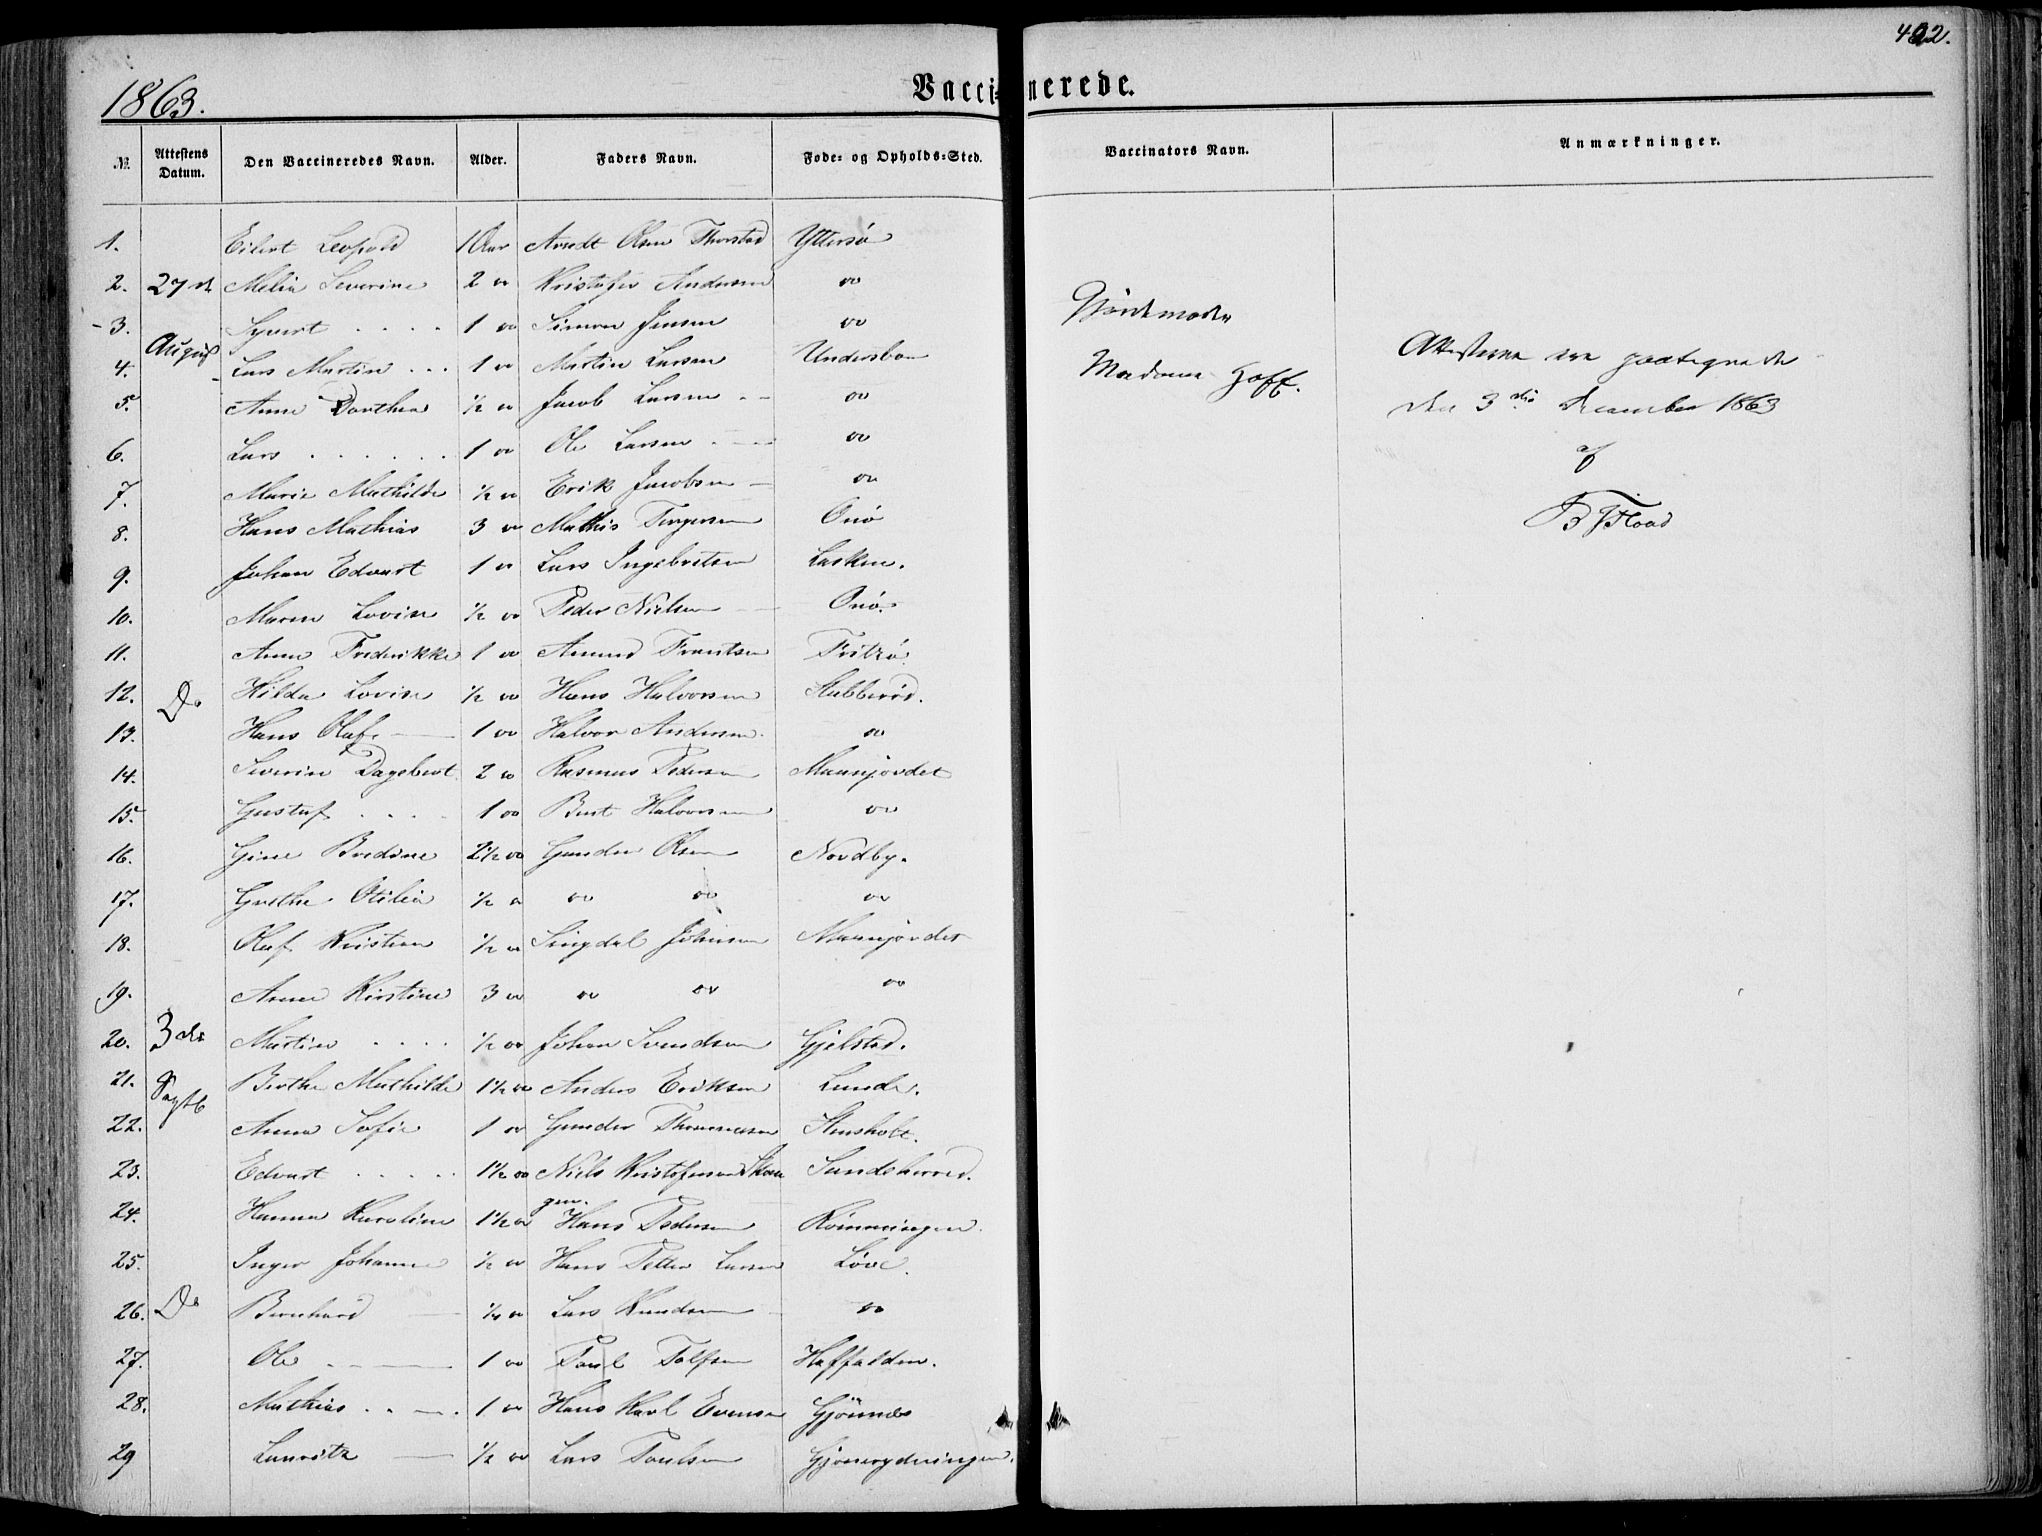 402.
1863. Vaccinerede.
№ Attestens Datum. Den Vaccineredes Navn. Alder. Faders Navn. Føde- og Opholds-Sted. Vaccinators Navn. Anmærkninger.
1. Eilert Leopold 1 Aar Arndt Olsen Thorstad Yttersø
2. 27de Melia Severine 2 " Kristofer Andersen "
3. Syvert . . . . 1 " Simon Jensen "
4. August Lars Martin . . . 1 " Martin Larsen Undersbo
5. Anne Dorthea ½ " Jacob Larsen "
6. Lars . . . . . . 1 " Ole Larsen "
7. Marie Mathilde ½ " Erik Jacobsen "
8. Hans Mathias 3 " Mathis Torgersen Onø
9. Johan Edvart 1 " Lars Ingebretsen Lasken.
10. Maren Lovise ½ " Peder Nielsen Onø.
11. Anne Frederikke 1 " Amund Frantsen Fritzø.
12. Do Hilda Lovise ½ " Hans Halvorsen Stubberød.
13. Hans Olaf. 1 " Halvor Andersen "
14. Severin Dagobert 2 " Rasmus Pedersen Maurjordet
15. Gustaf . . . . 1 " Bent Halvorsen "
16. Gine Bredine 2½ " Gunder Olsen Nordby.
17. Grethe Otilia ½ " " " "
18. Olaf Kristian ½ " Singdal Johnsen Maurjordet
19. Anne Kirstine 3 " " " "
20. 3die Martin . . . . ½ " Johan Svendsen Gjelstad.
21. Septb Berthe Mathilde 1½ " Anders Eriksen Lunde.
22. Anna Sofie 1 " Gunder Thomassen Stensholt.
23. Edvart . . . . . 1½ " Niels Kristofersen Skau Sundeherred.
gen.
24. Hanna Karoline 1½ " Hans Pedersen Rømmingen.
25. Inger Johanne ½ " Hans Petter Larsen Løve.
26. Do Bernhard ¼ " Lars Knudsen "
27. Ole 1 " Poul Tolfsen Haffalden.
28. Mathias 1 " Hans Karl Evensen Gjønnes
29 Lauritz ½ " Lars Poulsen Gjønrydningen.
Gjordemoder
Madame Hoff.
Attesterne ere paategnede
den 3die December 1863
af
B Flood